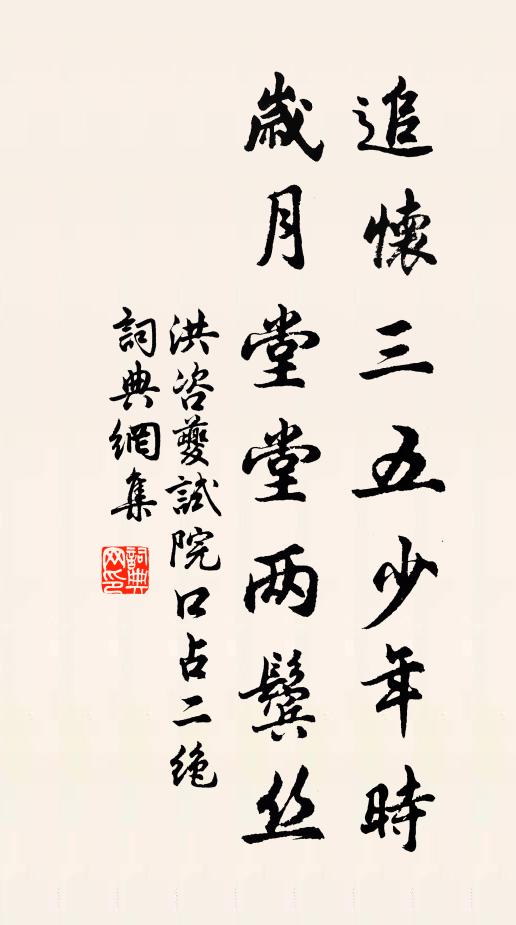 追懷三五少年時
歲月堂堂两鬢丝
洪咨夔試院口占二绝
詞典網集
詞典网印